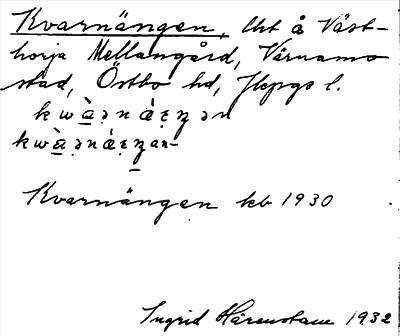 Kvarnängen, Uht å Väst-
horja Mellangård, Värnamo
stad, Östbo hd, Jkpgs l.
Kvarnängen kb 1930
Ingrid Härenstam 1932